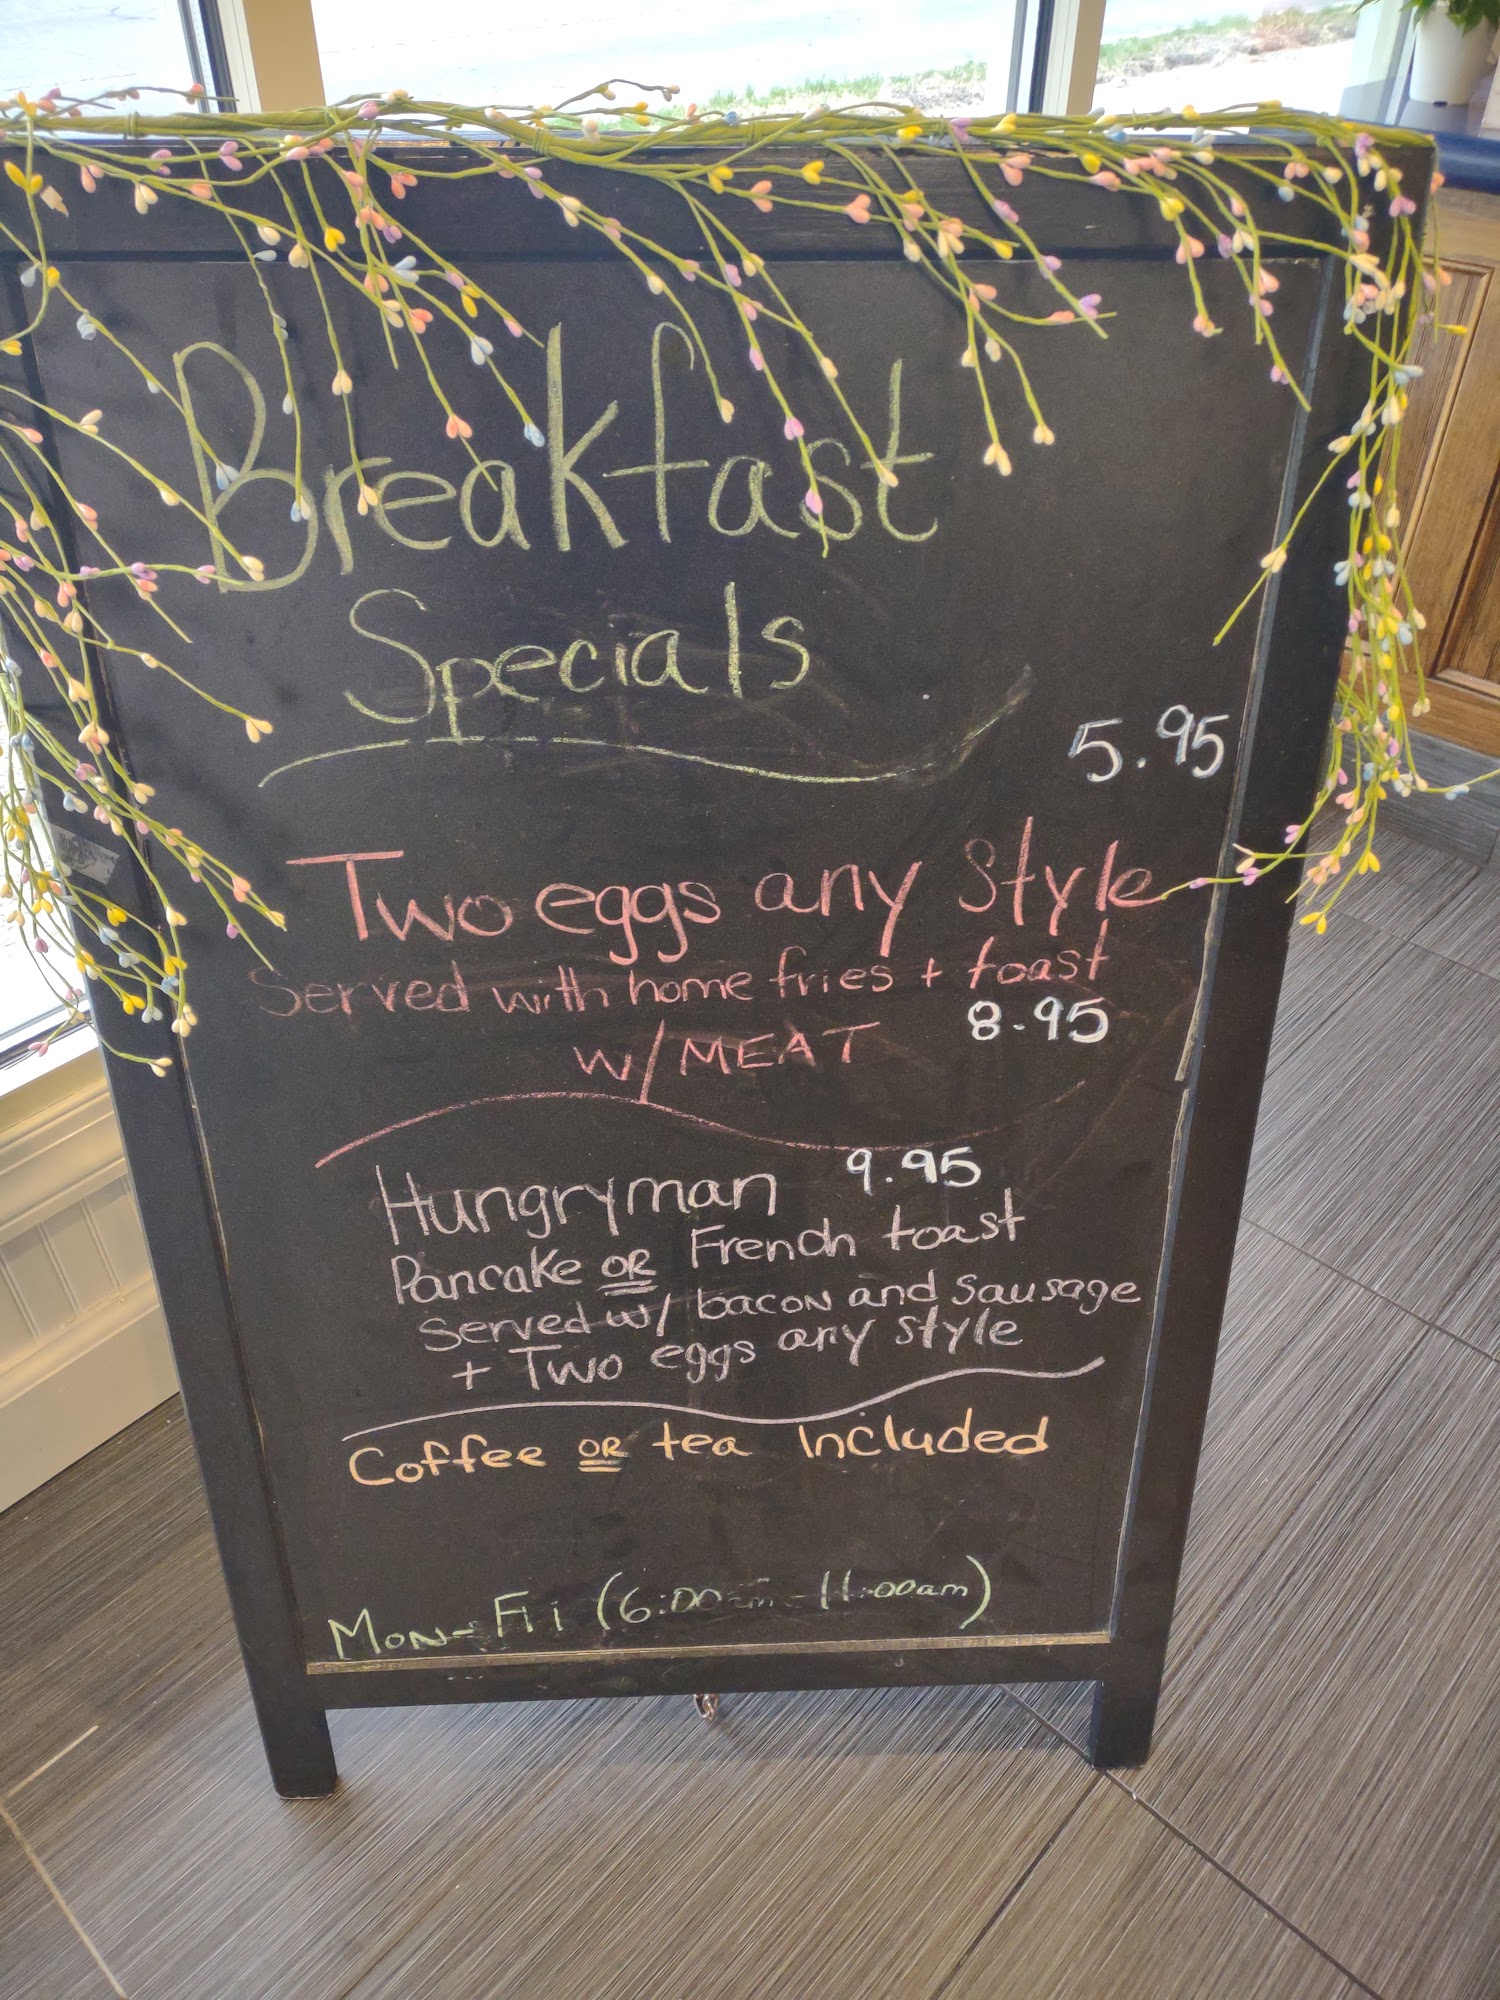 Breakfast
Specials
5.95
Two eggs any style
Served with home fries + toast
w/MEAT 8.95
Hungryman 9.95
Pancake OR French toast
Served w/ bacon and sausage
+ Two eggs any style
Coffee OR tea Included
Mon-Fri (6:00am-11:00am)